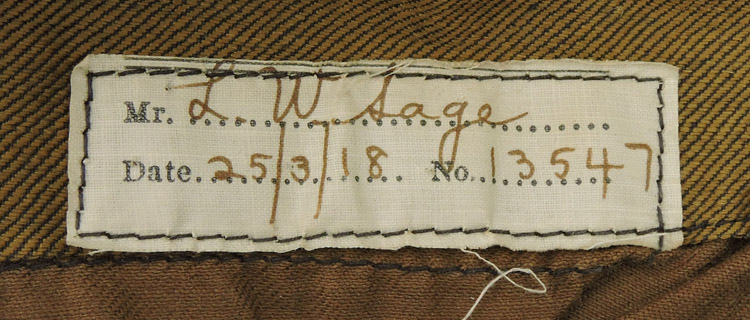 Mr. L. W. Sage
Date. 25/3/18. No. 13547